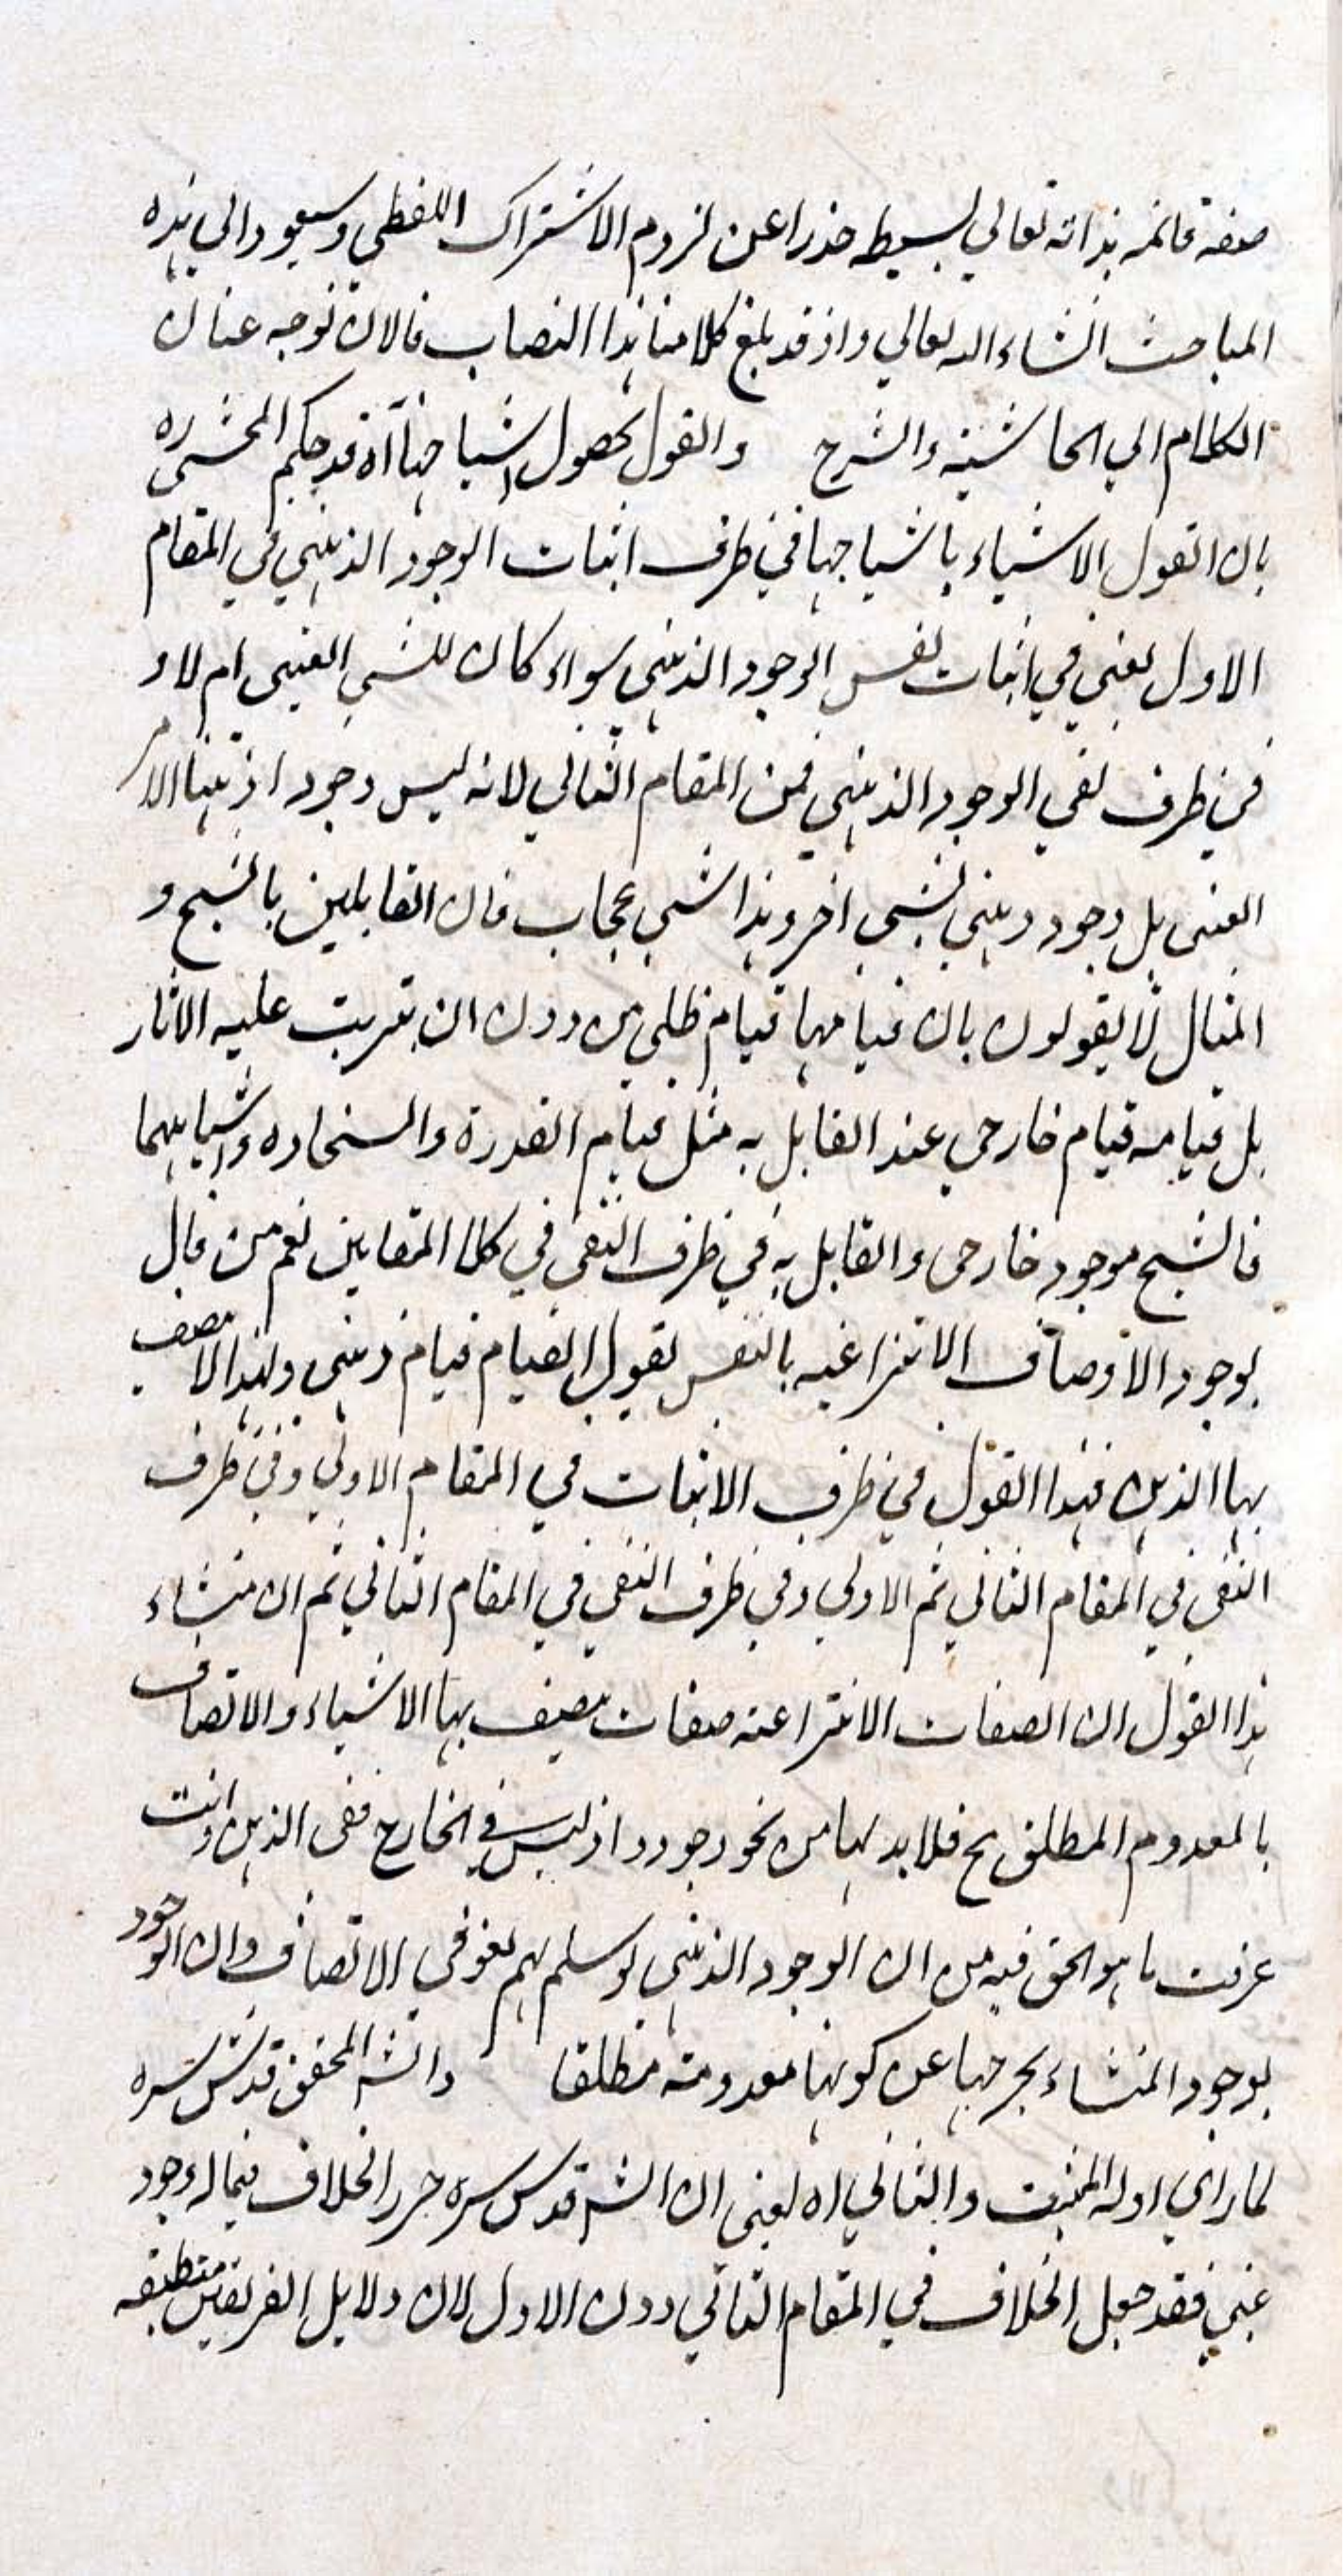 صفة قائمه بذاته تعالي بسيطه حذرا عن لزوم الاشتراك اللفظي وسيعود الي هذه
المباحث انشاء الله تعالي واذ قد بلغ كلامنا هذا النصاب فالان نوجه عنان
الكلام الي الحاشية والشرح والقول بحصول اشباحها آه قد حكم المحشي ره
بان القول الاشياء باشباحها في طرف اثبات الوجود الذهني في المقام
الاول يعني في اثبات نفس الوجود الذهني سواء كان للشي العيني ام لا و
في طرف نفي الوجود الذهني فمن المقام الثاني لانه ليس وجودا ذهنيا للامر
العيني بل وجود ذهني لشي اخر وهذا شي عجاب فان القايلين بالشبح و
المثال لا يقولون بان قيامها قيام ظلي من دون ان يترتب عليه الاثار
بل قيامه قيام خارجي عند القايل به مثل قيام القدرة والسخاوه واشباههما
فالشبح موجود خارجي والقايل به في طرف النفي في كلا المقامين نعم من قال
بوجود الاوصاف الانتزاعيه بالنفس يقول القيام قيام ذهني ولهذا لا يتصف
بها الذهن فهذا القول في طرف الاثبات في المقام الاولي وفي طرف
النفي في المقام الثاني ثم الاولي وفي طرف النفي في المقام الثاني ثم ان منشاء
هذا القول ان الصفات الانتزاعية صفات يتصف بها الاشياء والاتصاف
بالمعدوم المطلق مح فلا بد لها من نحو وجود واذ ليس في الخارج ففي الذهن وانت
عرفت ما هو الحق فيه من ان الوجود الذهني لو سلم لهم لغو في الاتصاف وان الوجود
بوجود المنشاء يخرجها عن كونها معدومة مطلقا والشه المحقق قدس سره
لما راي ادلة المثبت والثاني اه يعني ان الشه قدس سره حرر الخلاف فيما له وجود
عيني فقد جعل الخلاف في المقام الثاني دون الاول لان دلايل الفريقين منطبقه